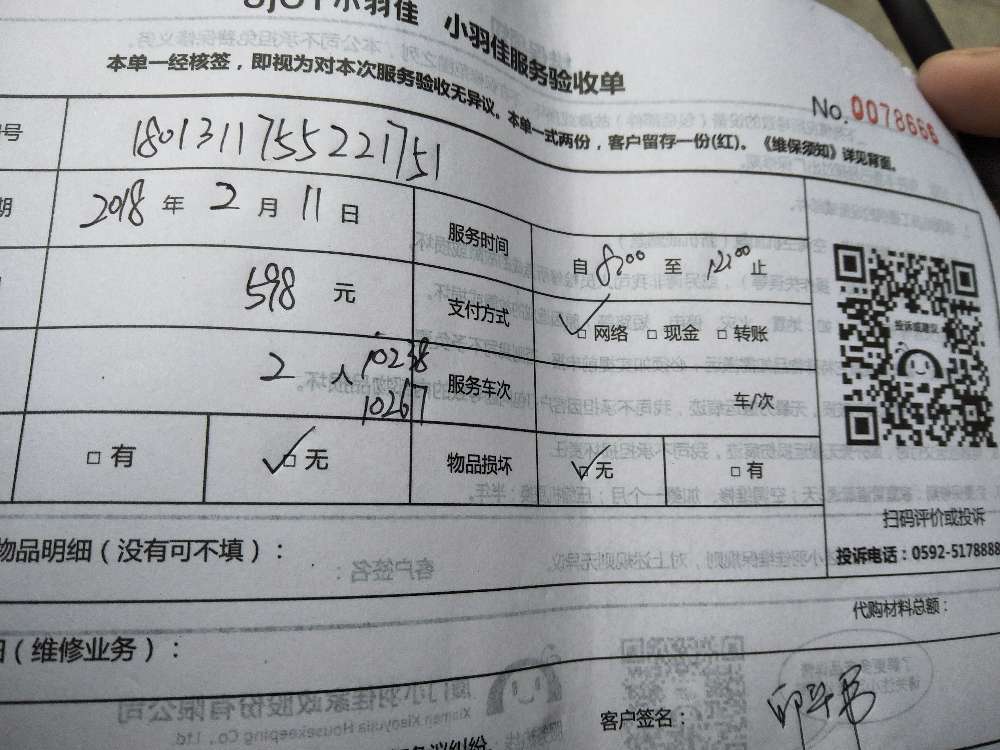 小羽佳 小羽佳服务验收单
本单一经核签，即视为对本次服务验收无异议。本单一式两份，客户留存一份(红)。《维保须知》详见背面。
No.0078666
号 1801311755221751
期 2018 年 2 月 11 日 服务时间 自 8:00 至 12:00 止
598 元 支付方式 ✓□ 网络 □ 现金 □ 转账
2 人 10238 10267 服务车次 车/次
□ 有 ✓□ 无 物品损坏 ✓□ 无 □ 有
投诉或建议
扫码评价或投诉
投诉电话：0592-5178888
物品明细（没有可不填）：
代购材料总额：
（维修业务）：
客户签名：